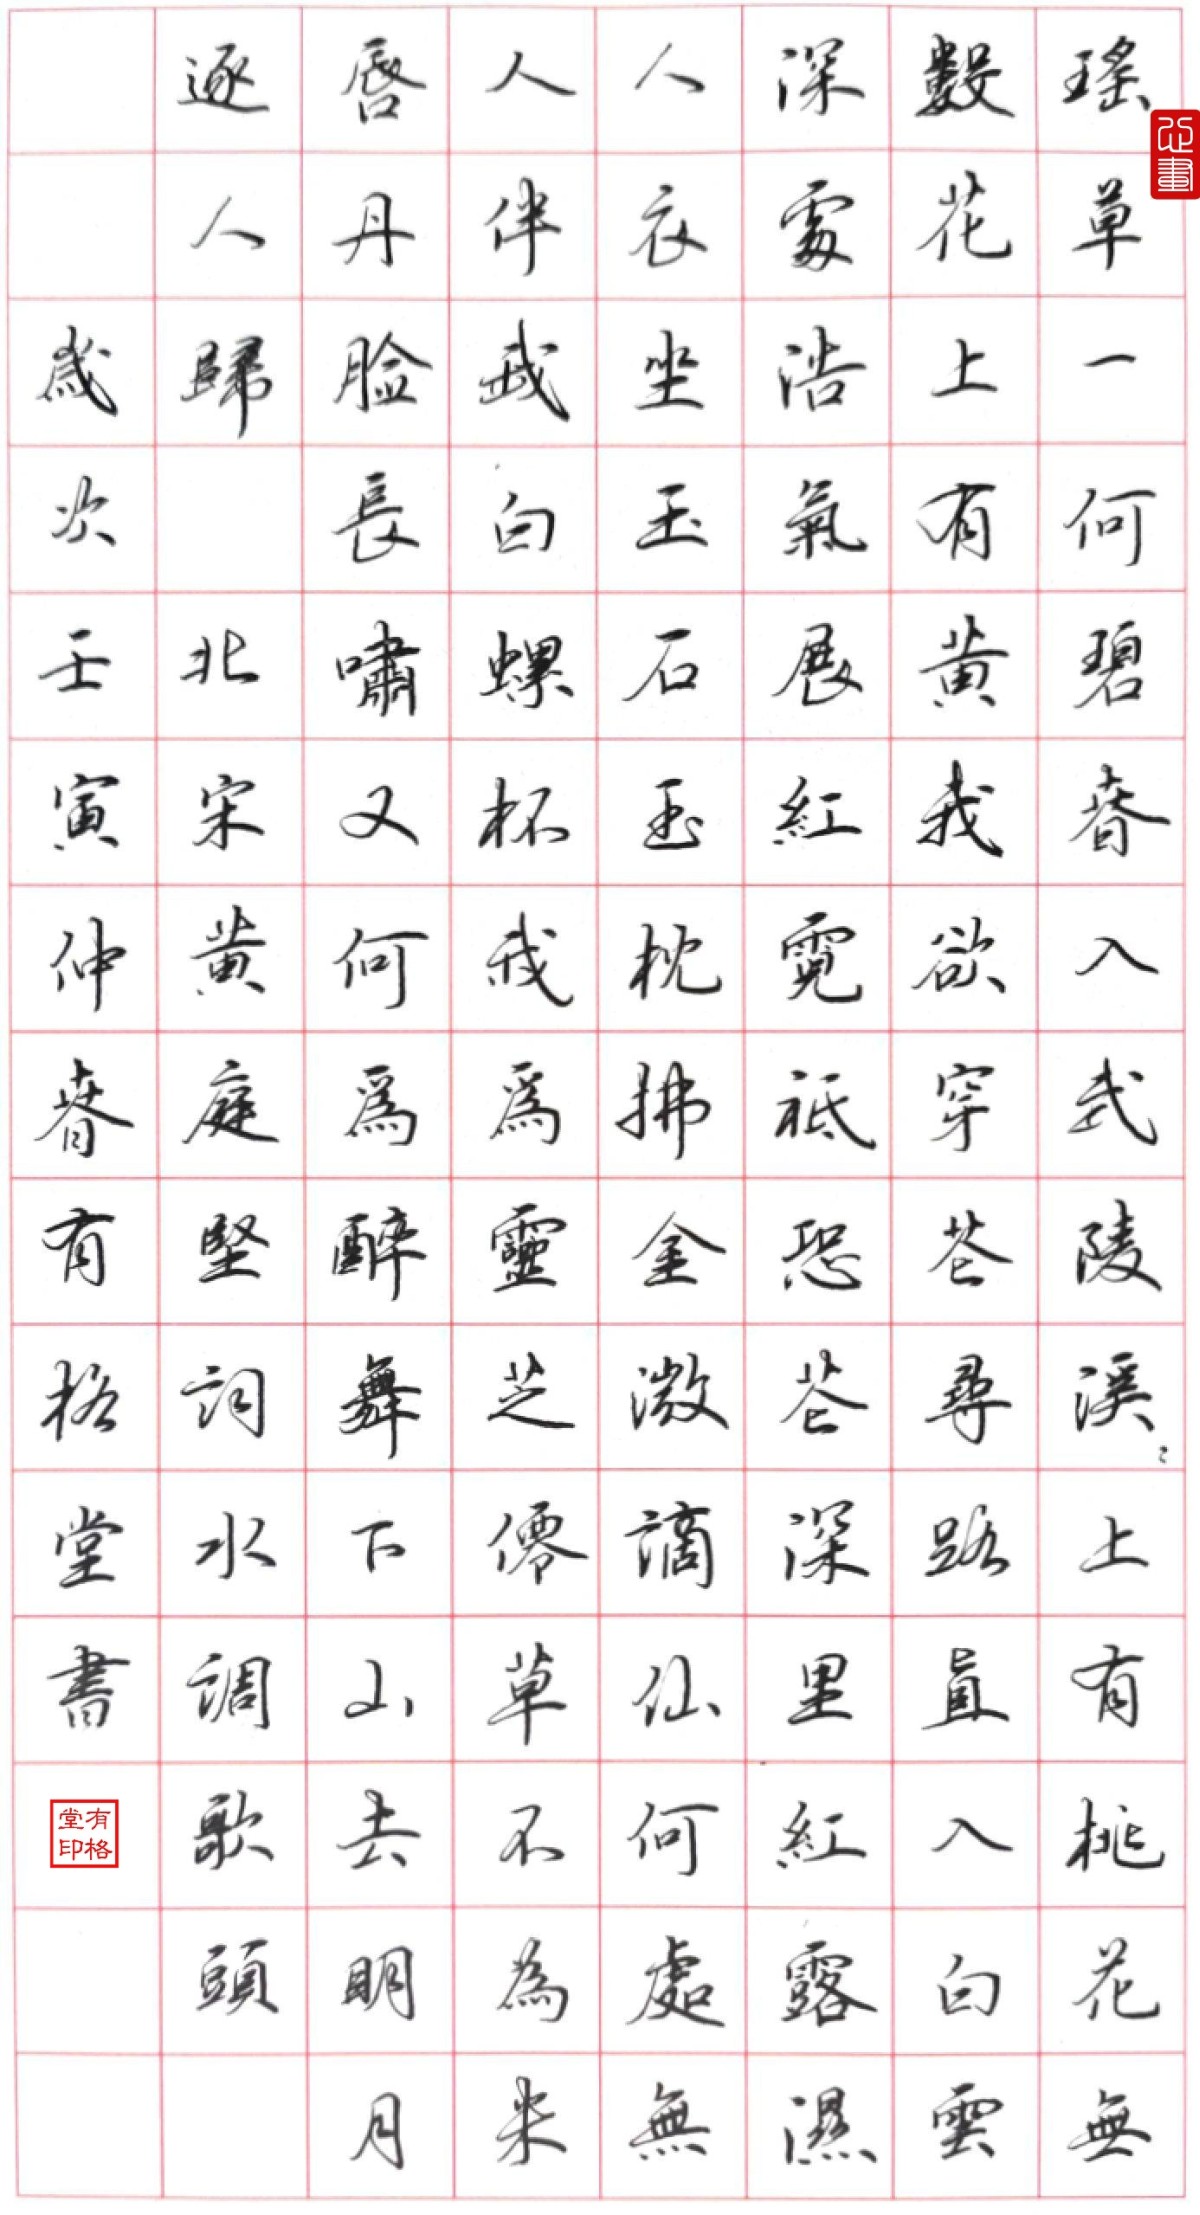 瑤草一何碧春入武陵溪〻上有桃花無
數花上有黄我欲穿花尋路直入白雲
深處浩氣展紅霓祗恐花深里紅露濕
人衣坐玉石玉枕拂金徽謫仙何處無
人伴我白螺杯我爲靈芝僊草不為朱
唇丹脸長嘯又何爲醉舞下山去明月
逐人歸 北宋黄庭堅詞水調歌頭
歲次壬寅仲春有格堂書
有格堂印
心畫